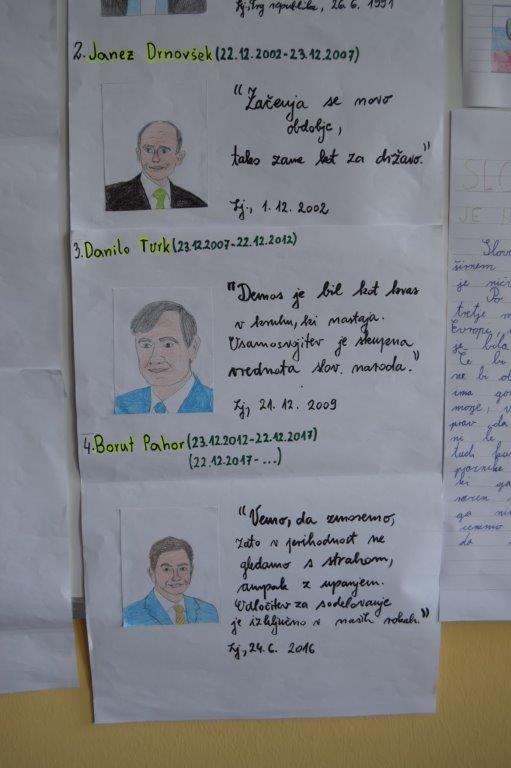 Lj., Trg republike, 26. 6. 1991
2. Janez Drnovšek (22.12.2002-23.12.2007)
"Začenja se novo
obdobje,
tako zame kot za državo."
Lj., 1. 12. 2002
3. Danilo Turk (23.12.2007-22.12.2012)
"Demos je bil kot kvas
v kruhu, ki nastaja.
Osamosvojitev je skupna
vrednota slov. naroda."
Lj, 21. 12. 2009
4. Borut Pahor (23.12.2012-22.12.2017)
(22.12.2017-...)
"Vemo, da zmoremo,
zato v prihodnost ne
gledamo s strahom,
ampak z upanjem.
Odločitev za sodelovanje
je izključno v naših rokah."
Lj, 24. 6. 2016
SLO
JE S
Slove
širnem
je nič
Po
tretje
Evrope,
je bila
Če bi
ne bi
ima
može, v
prav da
ni le
tudi
ki ga
ga
da